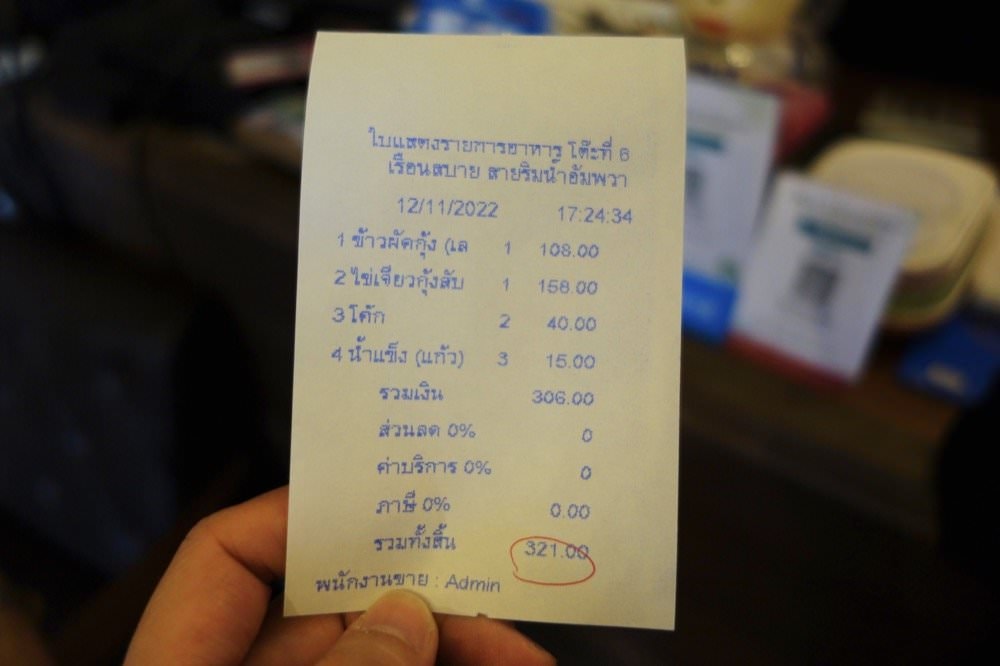 ใบแสดงรายการอาหาร โต๊ะที่ 6
เรือนสบาย สายริมน้ำอัมพวา
12/11/2022 17:24:34
1 ข้าวผัดกุ้ง (เล 1 108.00
2 ไข่เจียวกุ้งสับ 1 158.00
3 โค้ก 2 40.00
4 น้ำแข็ง (แก้ว) 3 15.00
รวมเงิน 306.00
ส่วนลด 0% 0
ค่าบริการ 0% 0
ภาษี 0% 0.00
รวมทั้งสิ้น 321.00
พนักงานขาย : Admin